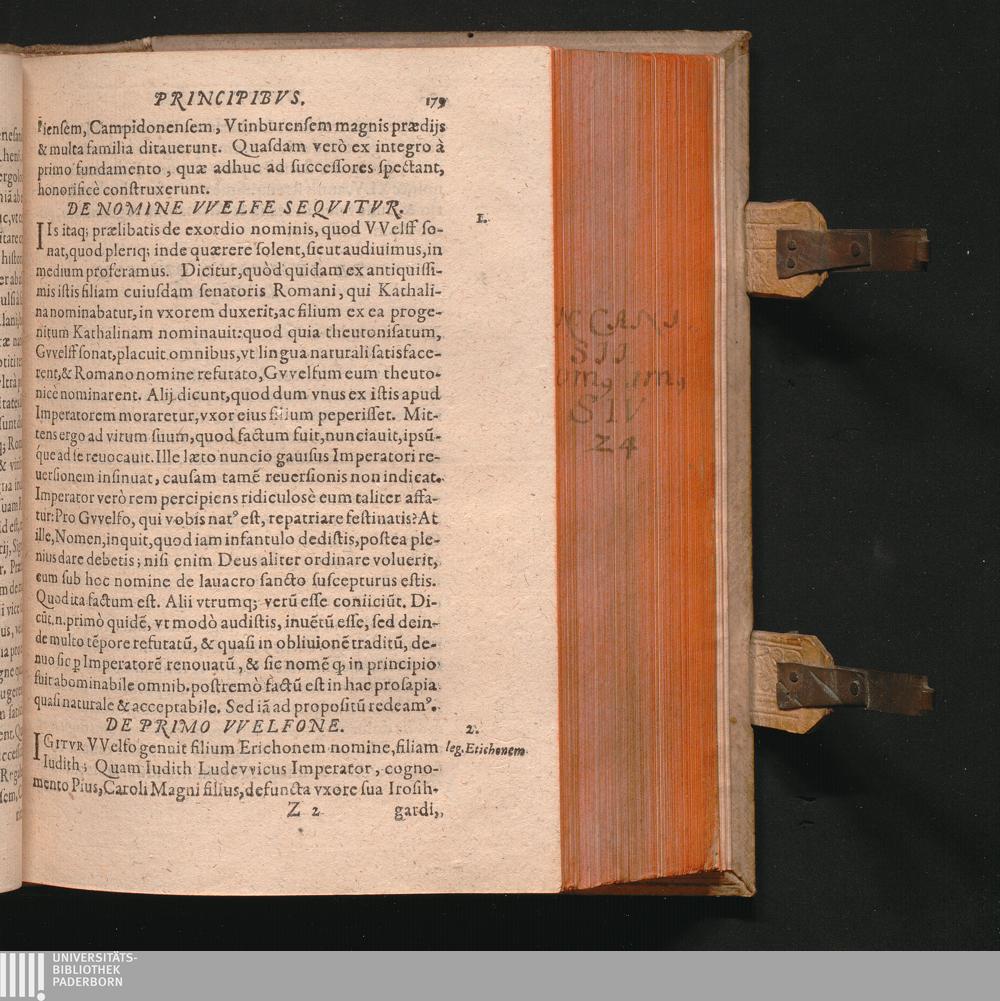 PRINCIPIBVS. 179
iensem, Campidonensem, Vtinburensem magnis prædijs
& multa familia ditauerunt. Quasdam verò ex integro à
primo fundamento, quæ adhuc ad successores spectant,
honorificè construxerunt.
DE NOMINE VVELFE SEQVITVR.
1.
IIs itaq; prælibatis de exordio nominis, quod VVelff so-
nat, quod pleriq; inde quærere solent, sicut audiuimus, in
medium proferamus. Dicitur, quòd quidam ex antiquissi-
mis istis filiam cuiusdam senatoris Romani, qui Kathali-
na nominabatur, in vxorem duxerit, ac filium ex ea proge-
nitum Kathalinam nominauit: quod quia theutonisatum,
Gvvelff sonat, placuit omnibus, vt lingua naturali satisface-
rent, & Romano nomine refutato, Gvvelfum eum theuto-
nicè nominarent. Alij dicunt, quod dum vnus ex istis apud
Imperatorem moraretur, vxor eius filium peperisset. Mit-
tens ergo ad virum suum, quod factum fuit, nunciauit, ipsũ-
que ad se reuocauit. Ille læto nuncio gauisus Imperatori re-
uersionem insinuat, causam tamẽ reuersionis non indicat.
Imperator verò rem percipiens ridiculosè eum taliter affa-
tur: Pro Gvvelfo, qui vobis natꝰ est, repatriare festinatis? At
ille, Nomen, inquit, quod iam infantulo dedistis, postea ple-
nius dare debetis; nisi enim Deus aliter ordinare voluerit,
eum sub hoc nomine de lauacro sancto suscepturus estis.
Quod ita factum est. Alii vtrumq; verũ esse coniiciũt. Di-
cũt. n. primò quidẽ, vt modò audistis, inuẽtũ esse, sed dein-
de multo tẽpore refutatũ, & quasi in obliuionẽ traditũ, de-
nuo sic ꝑ Imperatorẽ renouatũ, & sic nomẽ ꝙ in principio
fuit abominabile omnib. postremò factũ est in hac prosapia
quasi naturale & acceptabile. Sed iã ad propositũ redeamꝰ.
DE PRIMO VVELFONE.
2.
IGITVR VVelfo genuit filium Erichonem nomine, filiam
leg. Etichonem
Iudith; Quam Iudith Ludevvicus Imperator, cogno-
mento Pius, Caroli Magni filius, defuncta vxore sua Irosih-
Z 2 gardi,
SII
SIV
24
UNIVERSITÄTS-
BIBLIOTHEK
PADERBORN